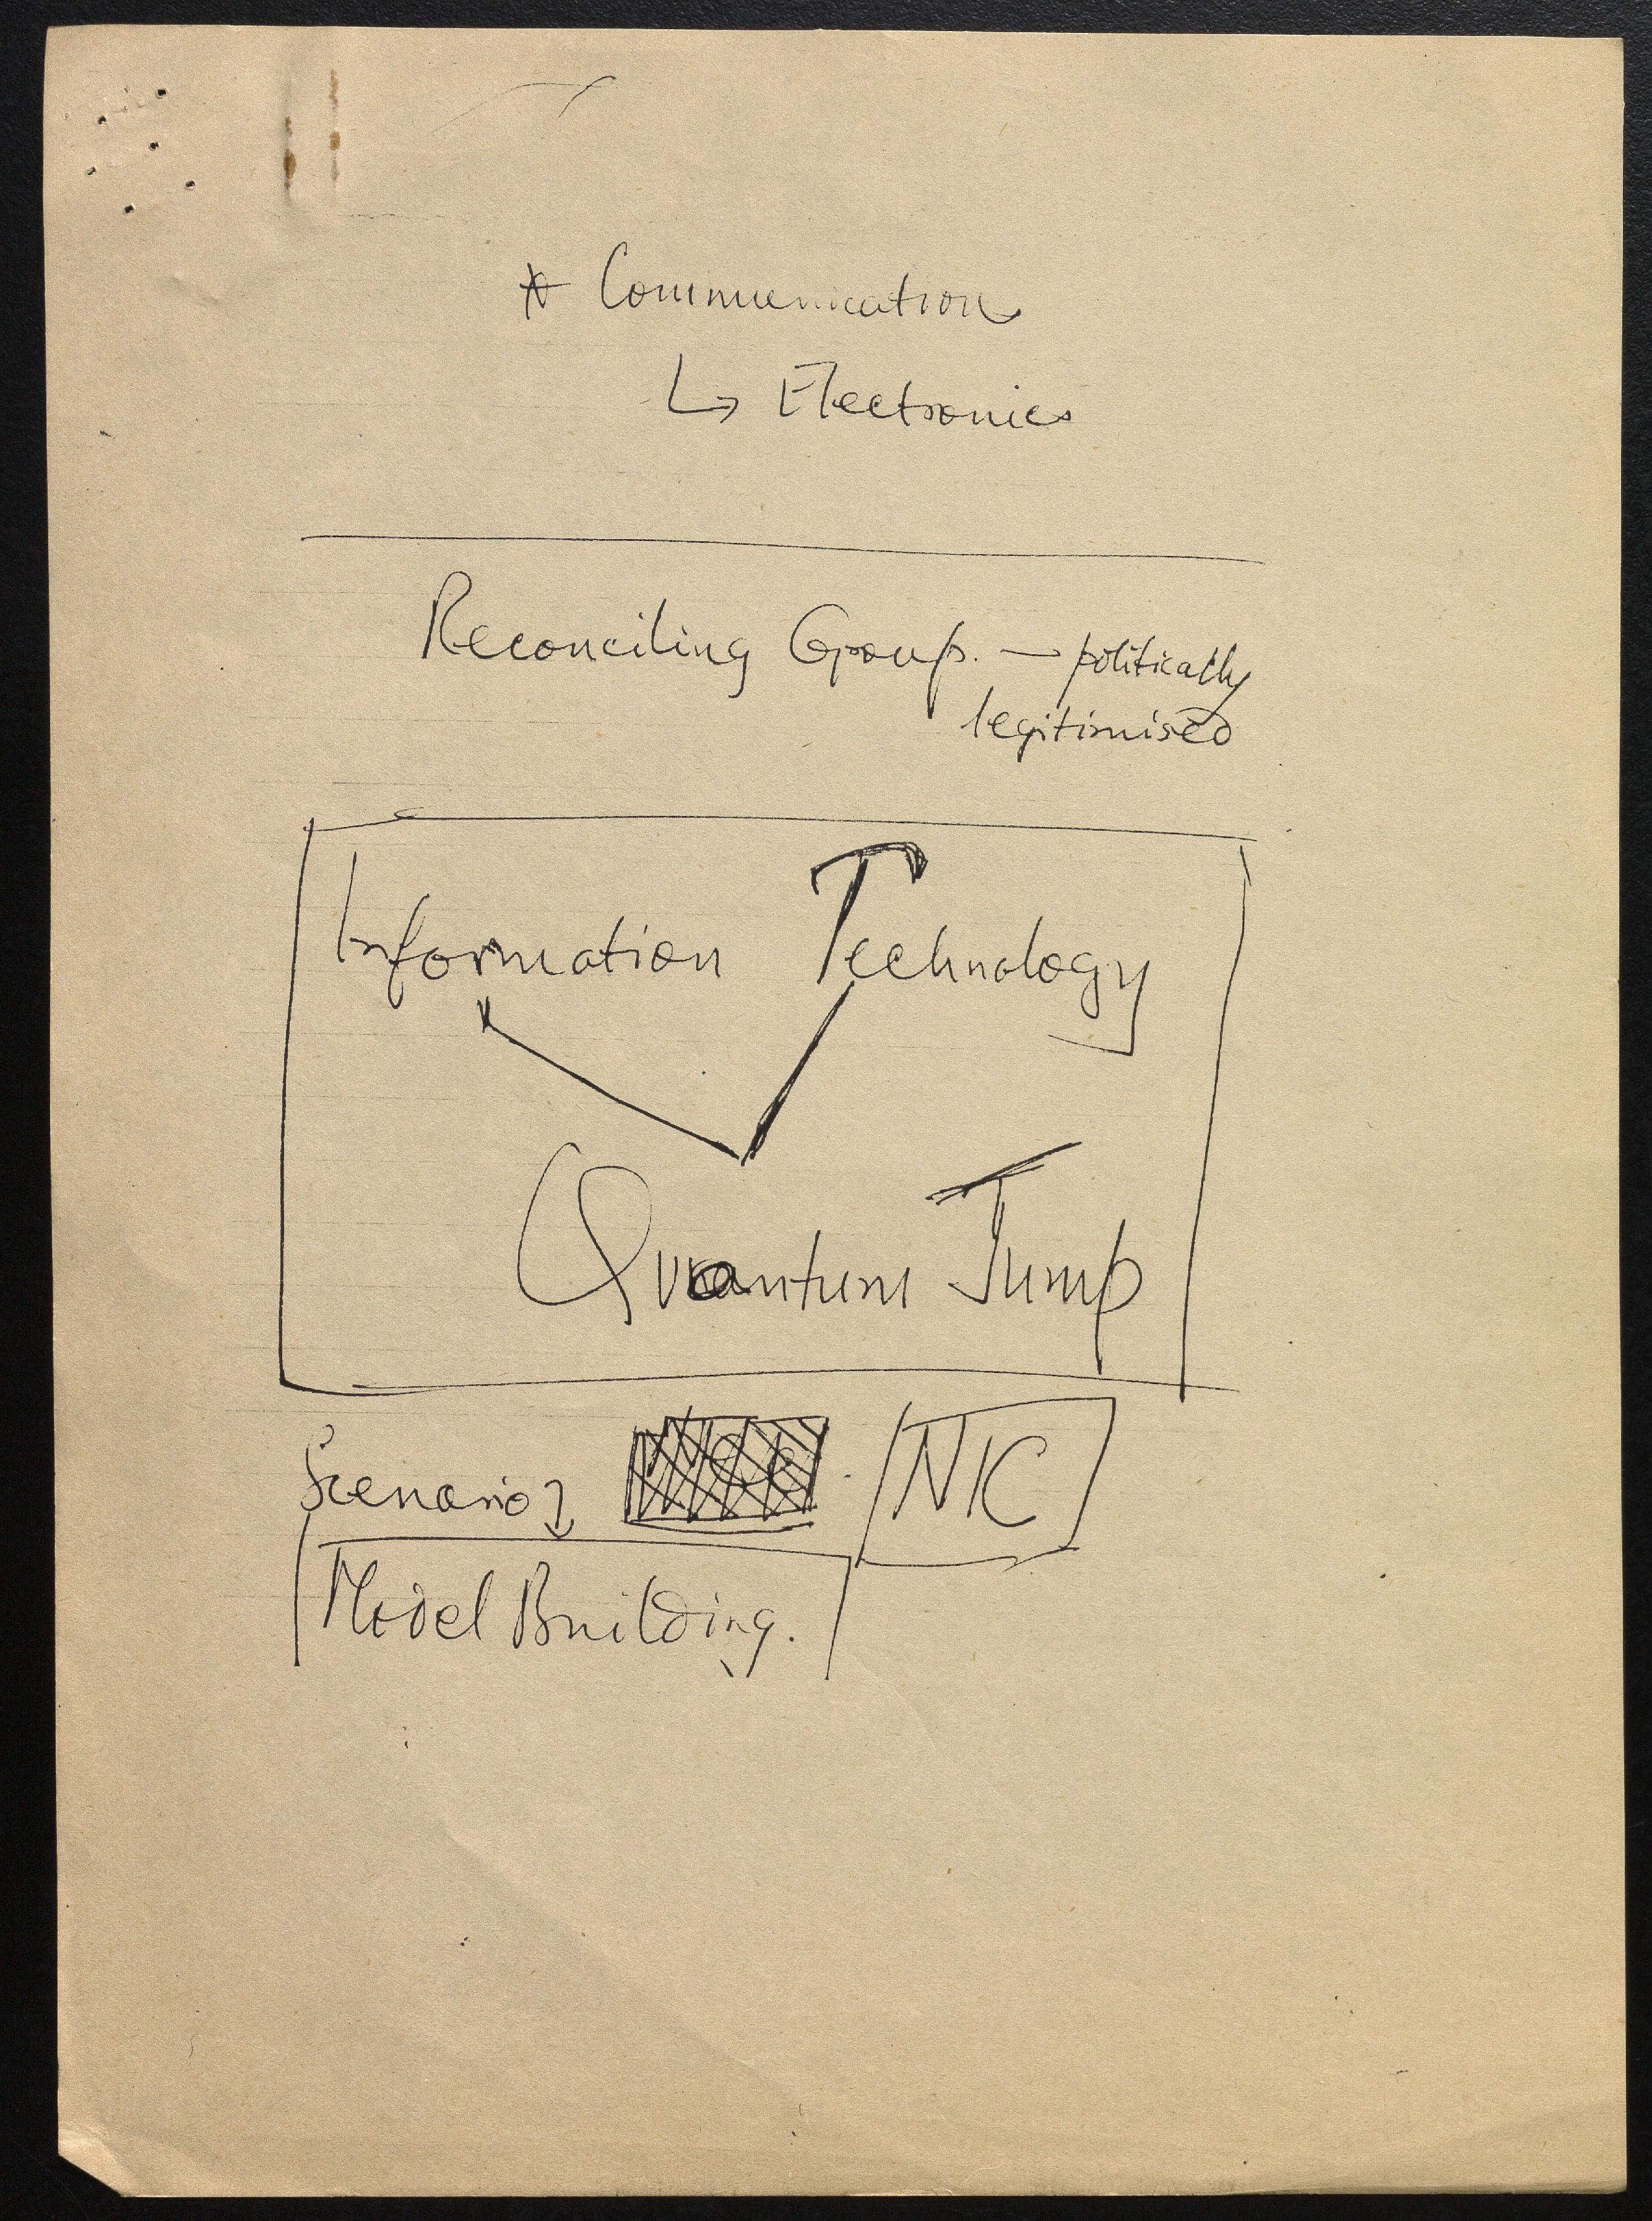 * Communication
↳ Electronics
Reconciling Group. — politically
legitimised
Information Technology
Quantum Jump
Scenario NIC
Model Building.